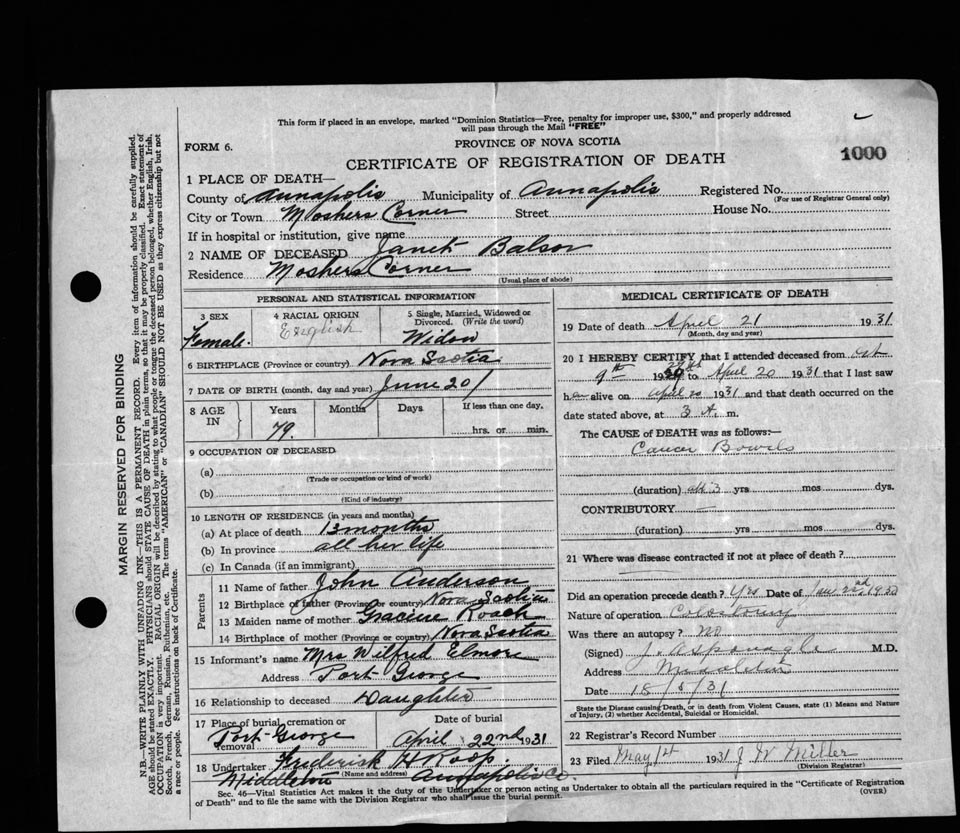 This form if placed in an envelope, marked "Dominion Statistics—Free, penalty for improper use, $300," and properly addressed
will pass through the Mail "FREE"
FORM 6.
PROVINCE OF NOVA SCOTIA
1000
CERTIFICATE OF REGISTRATION OF DEATH
1 PLACE OF DEATH—
County of Annapolis Municipality of Annapolis Registered No.
(For use of Registrar General only)
City or Town Moshers Corner Street House No.
If in hospital or institution, give name
2 NAME OF DECEASED Janet Balsor
Residence Moshers Corner
(Usual place of abode)
PERSONAL AND STATISTICAL INFORMATION
3 SEX 4 RACIAL ORIGIN 5 Single, Married, Widowed or Divorced. (Write the word)
Female. English Widow
6 BIRTHPLACE (Province or country) Nova Scotia
7 DATE OF BIRTH (month, day and year) June 20/
8 AGE IN Years Months Days If less than one day.
79. hrs. or min.
9 OCCUPATION OF DECEASED
(a)
(Trade or occupation or kind of work)
(b)
(Kind of industry)
10 LENGTH OF RESIDENCE (in years and months)
(a) At place of death 13 months
(b) In province all her life
(c) In Canada (if an immigrant)
Parents
11 Name of father John Anderson
12 Birthplace of father (Province or country) Nova Scotia
13 Maiden name of mother Roach
14 Birthplace of mother (Province or country) Nova Scotia
15 Informant's name Mrs Wilfred Elmore
Address Port George
16 Relationship to deceased Daughter
17 Place of burial, cremation or removal Port George
Date of burial
April 22nd 1931
18 Undertaker Frederick H Roop.
(Name and address)
Middleton Annapolis Co.
MEDICAL CERTIFICATE OF DEATH
19 Date of death April 21 1931
(Month, day and year)
20 I HEREBY CERTIFY that I attended deceased from Oct.
9th 1930 to April 20 1931 that I last saw
her alive on April 20 1931 and that death occurred on the
date stated above, at 3 A. m.
The CAUSE of DEATH was as follows:—
Cancer Bowels
(duration) 3 yrs mos dys.
CONTRIBUTORY —
(duration) yrs mos dys.
21 Where was disease contracted if not at place of death?
Did an operation precede death? Yes Date of 22nd, 1930
Nature of operation Colostomy
Was there an autopsy? No
(Signed) Sponagle M.D.
Address Middleton
Date 18/5/31
State the Disease causing Death, or in death from Violent Causes, state (1) Means and Nature of Injury, (2) whether Accidental, Suicidal or Homicidal.
22 Registrar's Record Number
23 Filed May 1st 1931 J W Miller
(Division Registrar)
Sec. 46—Vital Statistics Act makes it the duty of the Undertaker or person acting as Undertaker to obtain all the particulars required in the "Certificate of Registration
of Death" and to file the same with the Division Registrar who shall issue the burial permit.
(OVER)
MARGIN RESERVED FOR BINDING
N.B.—WRITE PLAINLY WITH UNFADING INK—THIS IS A PERMANENT RECORD. Every item of information should be carefully supplied.
AGE should be stated EXACTLY. PHYSICIANS should STATE CAUSE OF DEATH in plain terms, so that it may be properly classified. Exact statement of
OCCUPATION is very important. RACIAL ORIGIN will be described by stating to what people or tongue the deceased person belonged, whether English, Irish,
Scotch, French, German, Russian, Ruthenian, etc. The terms "AMERICAN" or "CANADIAN" SHOULD NOT BE USED as they express citizenship but not
a race or people. See instructions on back of Certificate.